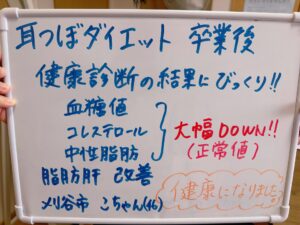 耳つぼダイエット 卒業後
健康診断の結果にびっくり!!
血糖値
コレステロール
中性脂肪
大幅DOWN!!
(正常値)
脂肪肝 改善
健康になりました。
刈谷市 こちゃん(46)